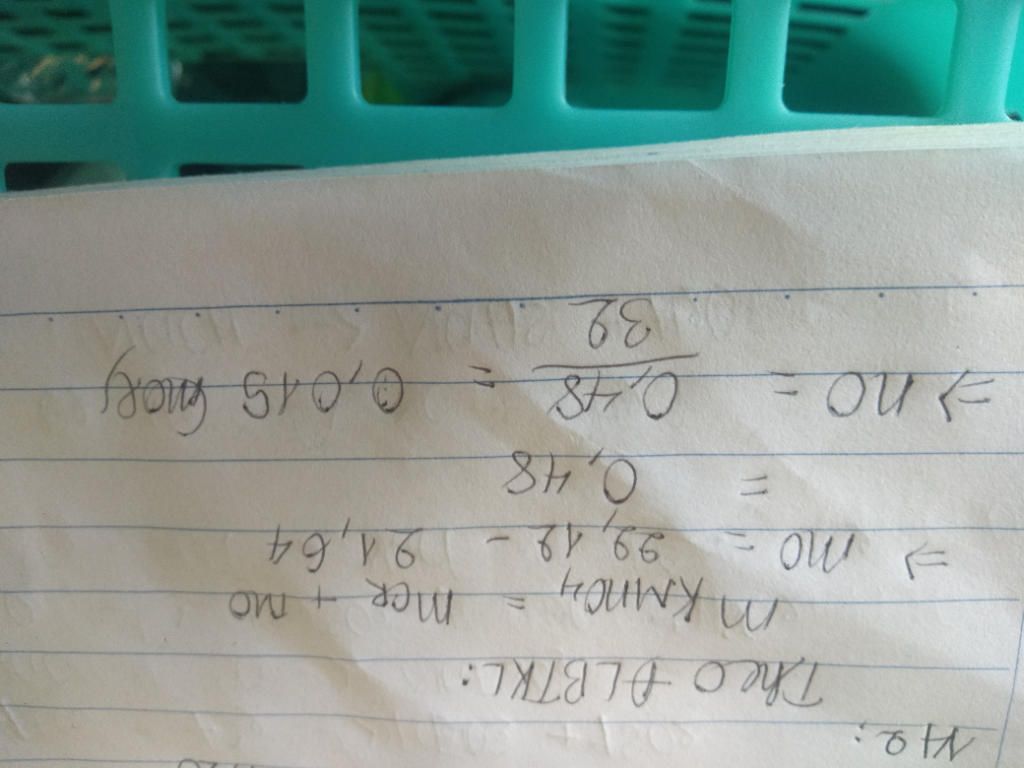 Theo ĐLBTKL:
mKMnO4 = mCR + mO
=> mO = 22,12 - 21,64
= 0,48
=> nO = 0,48/32 = 0,015 (mol)